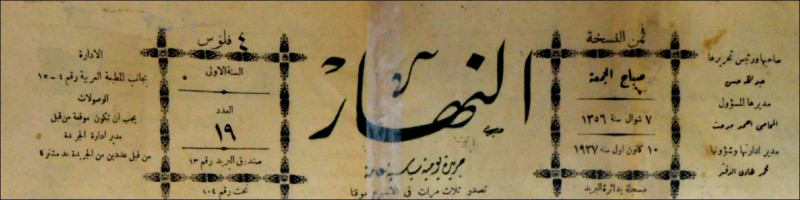 ثمن النسخة
٤ فلوس
صاحبها ورئيس تحريرها
عبدالله حسن
مديرها المسؤول
المحامي احمد مدحت
مدير ادارتها وشؤونها
محمد هادي الدفتر
صباح الجمعة
٧ شوال سنة ١٣٥٦
١٠ كانون اول سنة ١٩٣٧
مسجلة بدائرة البريد
النهار
جريدة يومية سياسية عامة
تصدر ثلاث مرات في الاسبوع موقتا
السنة الاولى
العدد
١٩
صندوق البريد رقم ١٣
تحت رقم ١٠٤
الادارة
بجانب المطبعة العربية رقم ٤ - ١٥
الوصولات
يجب ان تكون موقعة من قبل
مدير ادارة الجريدة
من قبل عددين من الجريدة عد مشتركا